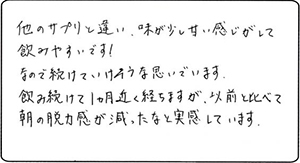 他のサプリと違い、味が少し甘い感じがして
飲みやすいです!
なので続けていけそうな思いでいます。
飲み続けて1ヵ月近く経ちますが、以前と比べて
朝の脱力感が減ったなと実感しています。